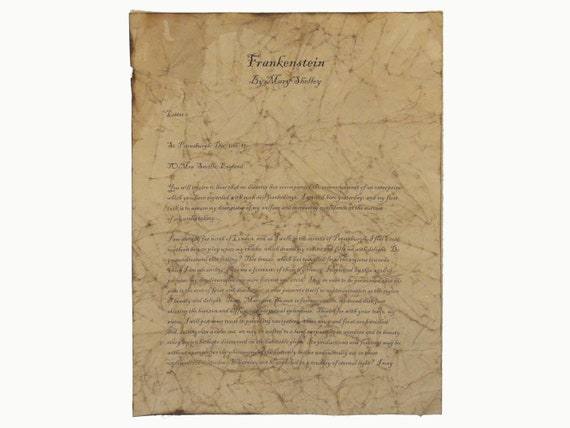 Frankenstein
By Mary Shelley
Letter 1
St. Petersburgh, Dec. 11th, 17-
TO Mrs. Saville, England
You will rejoice to hear that no disaster has accompanied the commencement of an enterprise
which you have regarded with such evil forebodings. I arrived here yesterday, and my first
task is to assure my dear sister of my welfare and increasing confidence in the success
of my undertaking.
I am already far north of London, and as I walk in the streets of Petersburgh, I feel a cold
northern breeze play upon my cheeks, which braces my nerves and fills me with delight. Do
understand this feeling? This breeze, which has travelled from the regions towards
which I am advancing, gives me a foretaste of those icy climes. Inspirited by this wind of
promise, my daydreams become more fervent and vivid. I try in vain to be persuaded that the
pole is the seat of frost and desolation; it ever presents itself to my imagination as the region
of beauty and delight. There, Margaret, the sun is forever visible, its broad disk just
skirting the horizon and diffusing a perpetual splendour. There for with your leave, my
sister, I will put some trust in preceding navigators there snow and frost are banished
and, sailing over a calm sea, we may be wafted to a land surpassing in wonders and in beauty
every region hitherto discovered on the habitable globe. Its productions and features may be
without example, as the phenomena of the heavenly bodies undoubtedly are in those
undiscovered solitudes. What may not be expected in a country of eternal light? I may